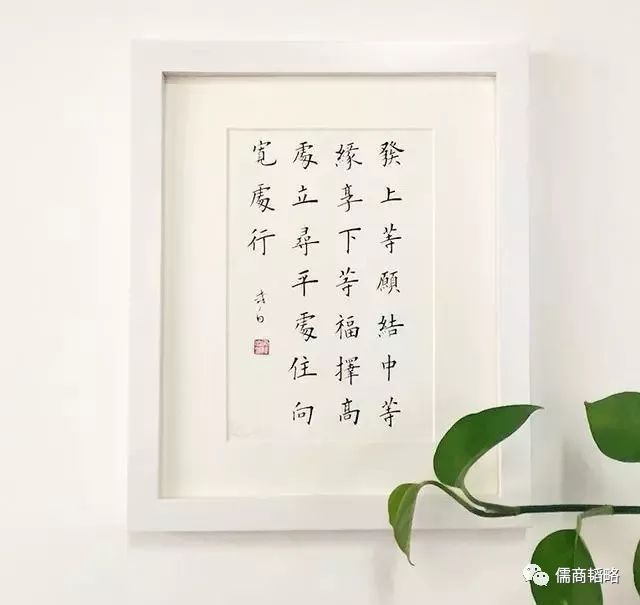 發上等願結中等
緣享下等福擇高
處立尋平處住向
寬處行
儒商韬略